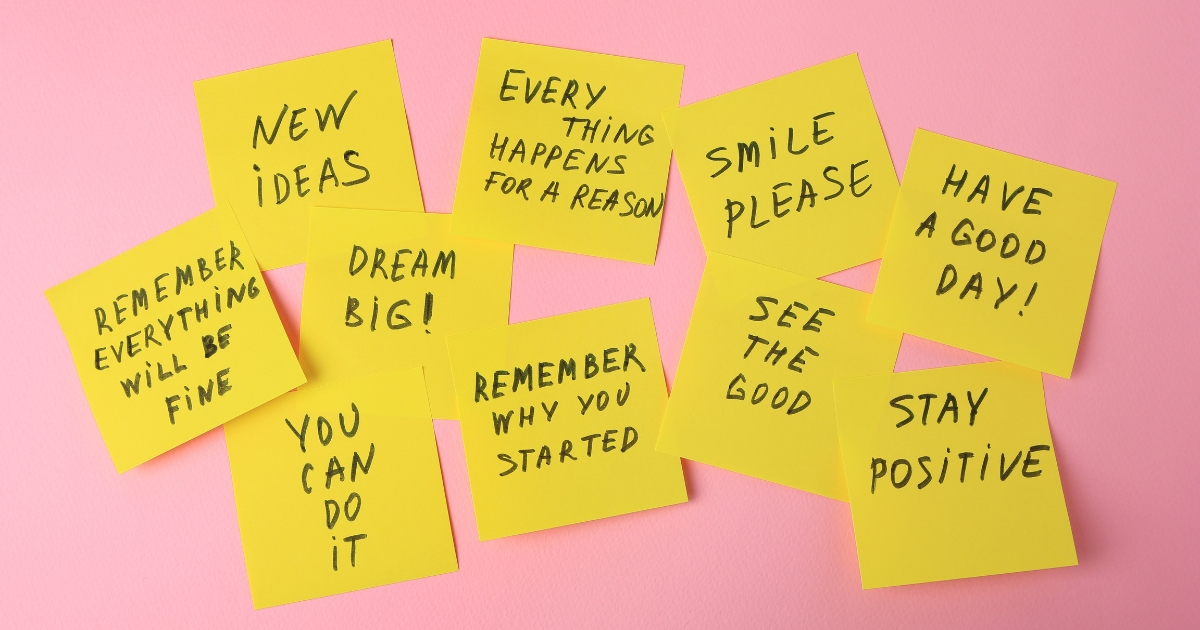 NEW
iDEAS
EVERY
THiNG
HAPPENS
FOR A REASON
SMiLE
PLEASE
HAVE
A GOOD
DAY!
REMEMBER
EVERYTHiNG
WiLL BE
FiNE
DREAM
BiG!
REMEMBER
WHY YOU
STARTED
SEE
THE
GOOD
YOU
CAN
DO
iT
STAY
POSiTiVE